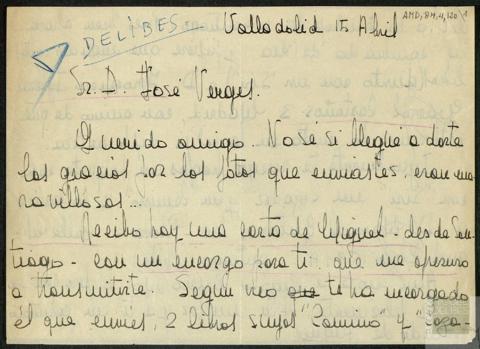 AMD,84,4,120/1
DELIBES
Valladolid 15 Abril
Sr. D. José Verges.
Querido amigo. No se si llegué a darte
las gracias por las fotos que enviastes, eran ma-
ravillosas...
Recibo hoy una carta de Miguel - desde San-
tiago - con un encargo para ti que me apresuro
a transmitirte. Segun veo que te ha encargado
él que envies, 2 libros suyos "Camino" y "Caza-